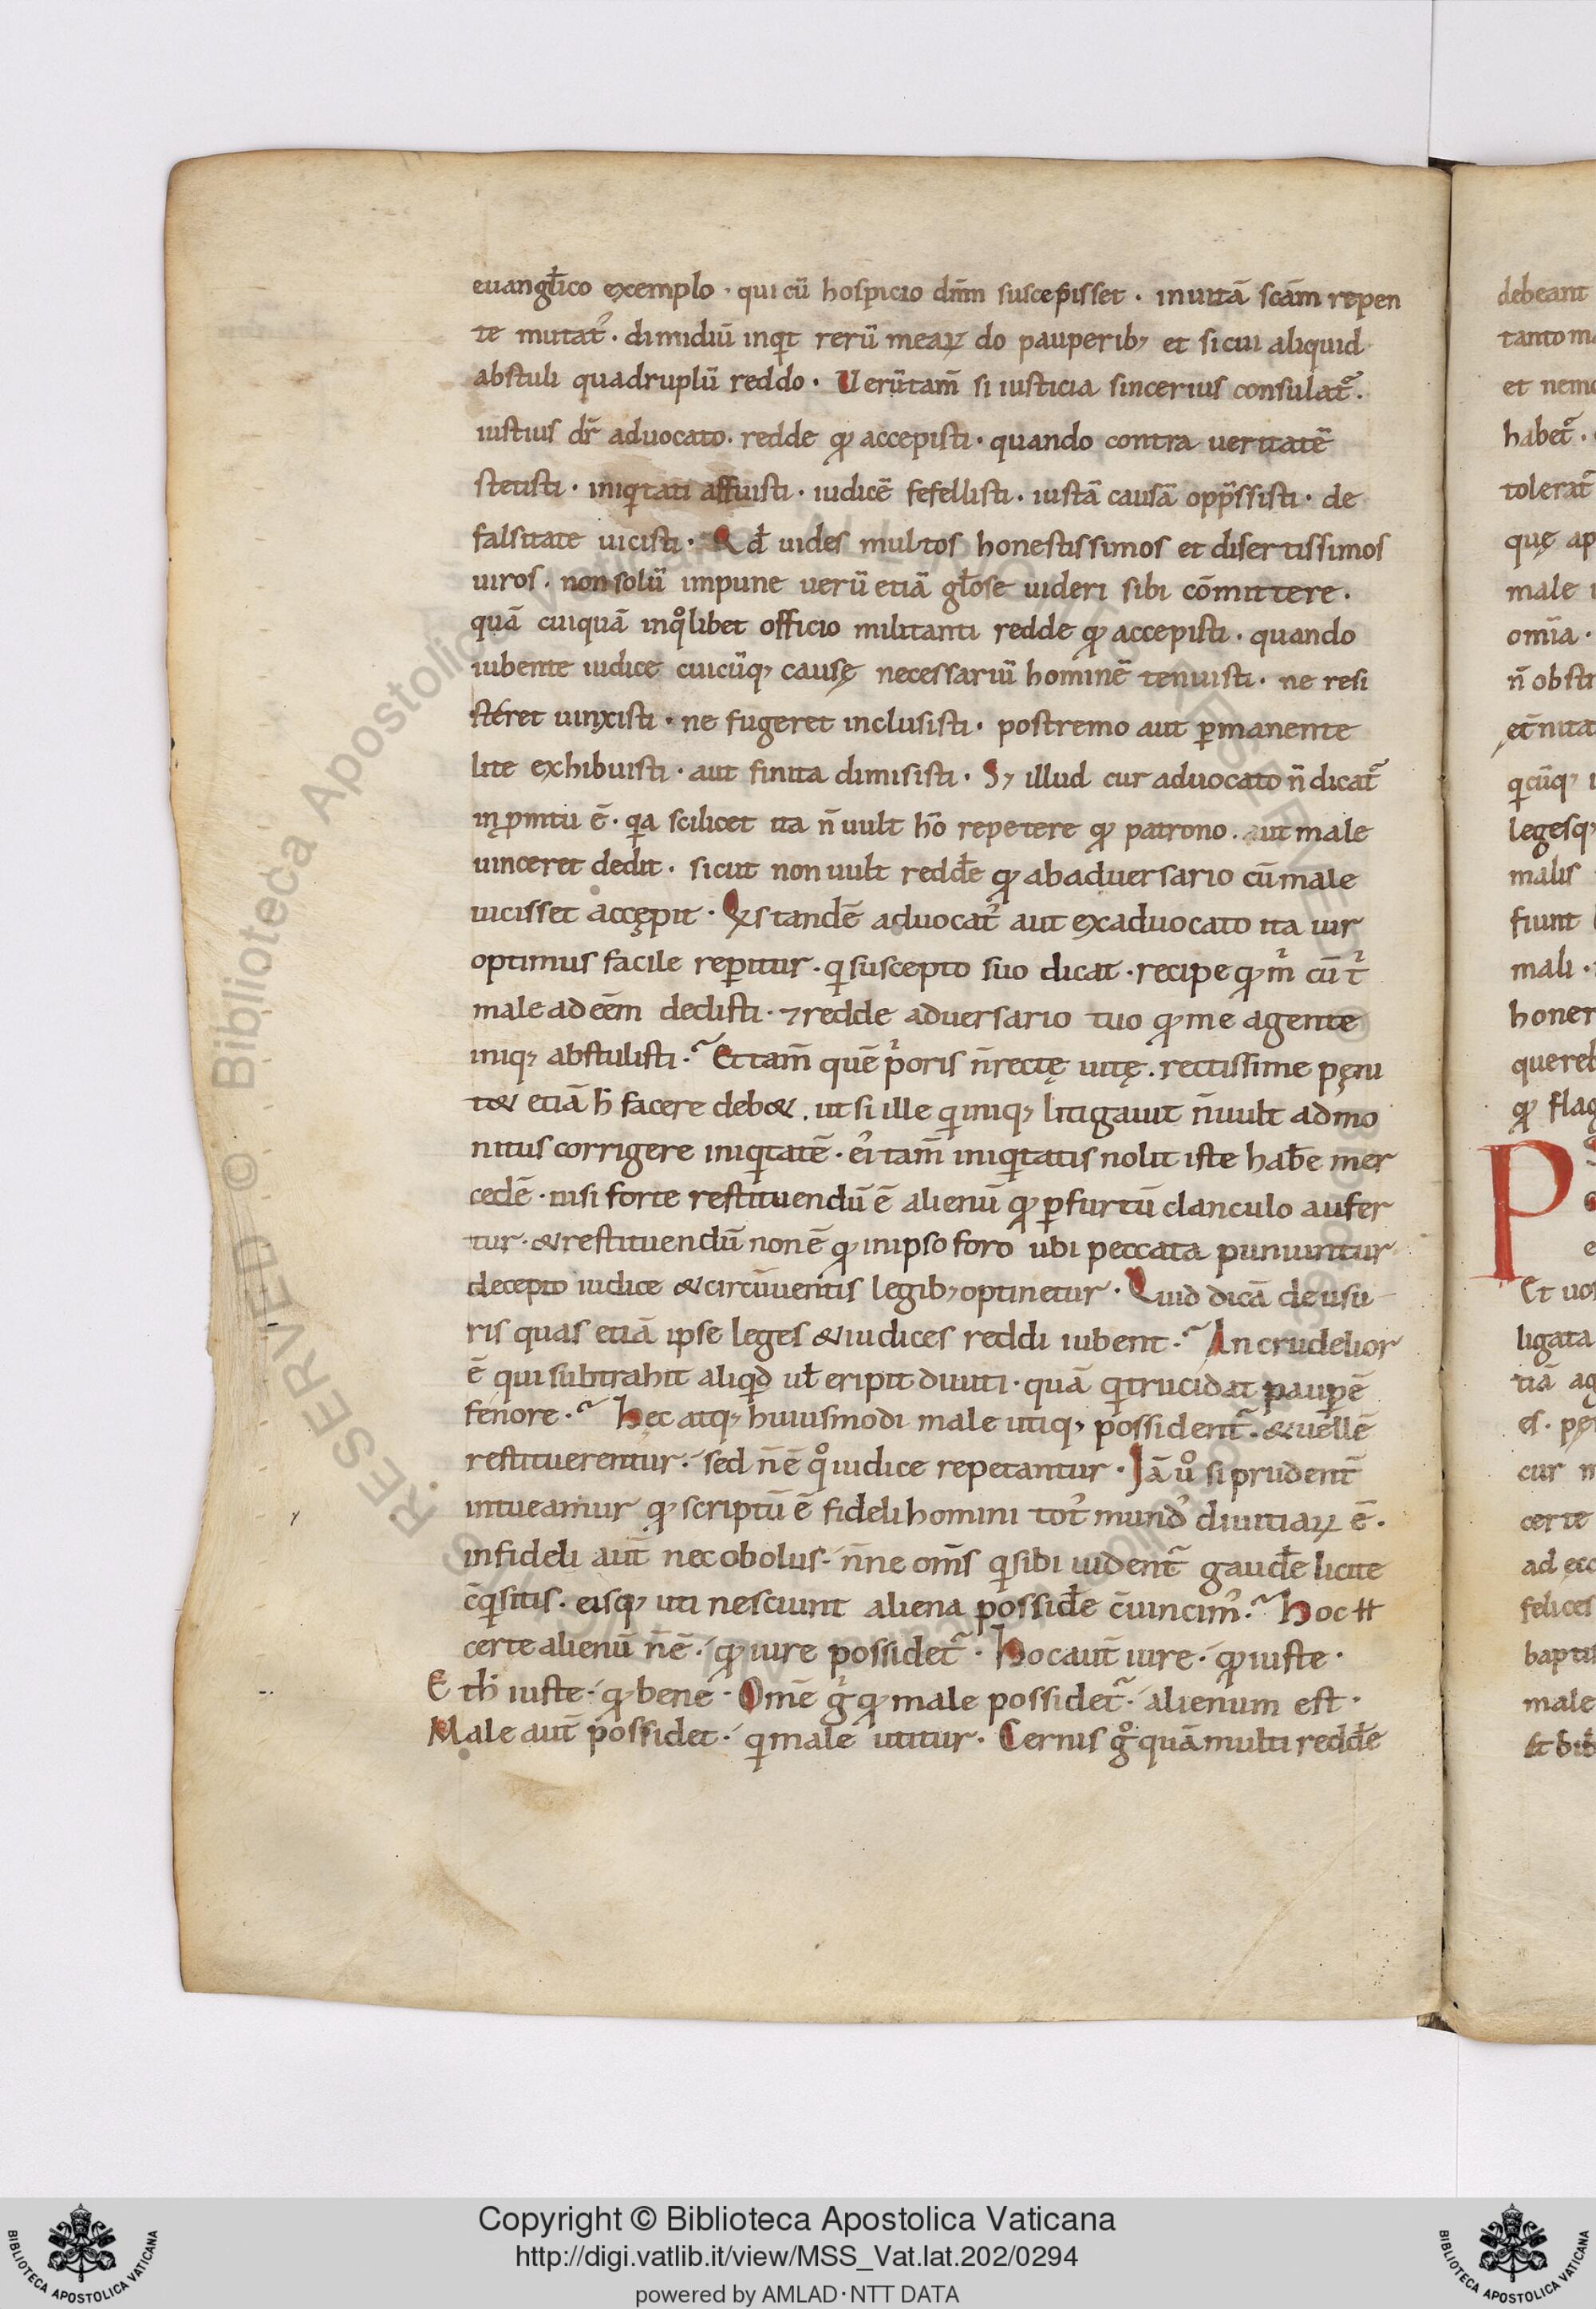 euangl̄ico exemplo · qui cū hospicio dn̄m suscep̄isset · in uitā sc̄am repen
te mutat᾽ · dimidiū inqt rerū meaꝝ do pauperib; et si cui aliquid
abstuli quadruplū reddo · Uerūtam̄ si iusticia sincerius consulat᷑ ·
iustius dr̄ aduocato · redde qđ accepisti · quando contra ueritatē
stetisti · iniqtati affuisti · iudicē fefellisti · iustā causā opp̄ssisti · de
falsitate uicisti · Qđ uides multos honestissimos et disertissimos
uiros · non solū impune uerū etiā gl̄ose uideri sibi cōmittere ·
quā cuiquā in qͦlibet officio militanti redde qđ accepisti · quando
iubente iudice cuicūq; causę necessariū hominē tenuisti · ne resi
steret uinxisti · ne fugeret inclusisti · postremo aut ꝑmanente
lite exhibuisti · aut finita dimisisti · S; illud cur aduocato n̄ dicat᷑
in ꝓmtu ē · qa scilicet ita n̄ uult hō repetere qđ patrono · aut male
uinceret dedit · sicut non uult reddēe qđ ab aduersario cū male
uicisset accępit · Q̊s tandē aduocat᾽ aut ex aduocato ita uir
optimus facile reꝑitur · q suscepto suo dicat · recipe qđ m̄ cū t̄
male adeēm dedisti · ⁊ redde aduersario tuo qđ me agente
iniq; abstulisti ·᷑ Et tam̄ quē p̓oris n̄ rectę uitę · rectissime pęni
t& etiā h̄ facere deb& · ut si ille q iniq; litigauit n̄ uult admo
nitus corrigere iniqtatē · ei᾽ tam̄ iniqtatis nolit iste hab̄e mer
cedē · nisi forte restituendū ē alienū qđ ꝑ furtū clanculo aufer
tur · & restituendū non ē qđ in ipso foro ubi peccata puniuntur
decepto iudice & circūuentis legib; optinetur · Quid dicā de usu
ris quas etiā ipse leges & iudices reddi iubent ·᷑ An crudelior
ē qui subtrahit aliqd uł eripit diuiti · quā q trucidat pauꝑē
fenore ·᷑ Hęc atq; huiusmodi male utiq; possident᷑ · & uellē
restituerentur · sed n̄ ē qͦ iudice repetantur · Iā uͦ si prudent̄
intueamur qđ scriptū ē fideli homini tot᾽ mund᾽ diuitiaꝝ ē ·
infideli aut̄ nec obolus · n̄ne om̄s q sibi uident᷑ gaudēe licite
c̄qsitis · eisq; uti nesciunt aliena possid̄e c̄uincim᾽ ·᷑ Hoc ħ
certe alienū n̄ ē · qđ iure possidet᷑ · Hoc aut̄ iure · qđ iuste ·
Et h̄ iuste · qđ bene · Om̄e g̓ qđ male possidet᷑ · alienum est ·
Male aut̄ possidet · q male utitur · Cernis gͦ quā multi redd̄e
debeant
et nem
habet᷑ ·
tolerat᷑
quę ap
male
om̄ia ·
n̄ obst
qcūq;
legesq;
malis
fiunt
mali ·
honer
quereb
qđ flag
P
Et uos
ligata
tiā ag
cur
certe
felices
male
R. RESERVED © Biblioteca Apostolica Vaticana
Copyright © Biblioteca Apostolica Vaticana
http://digi.vatlib.it/view/MSS_Vat.lat.202/0294
powered by AMLAD·NTT DATA
BIBLIOTECA APOSTOLICA VATICANA
BIBLIOTECA APOSTOLICA VATICANA